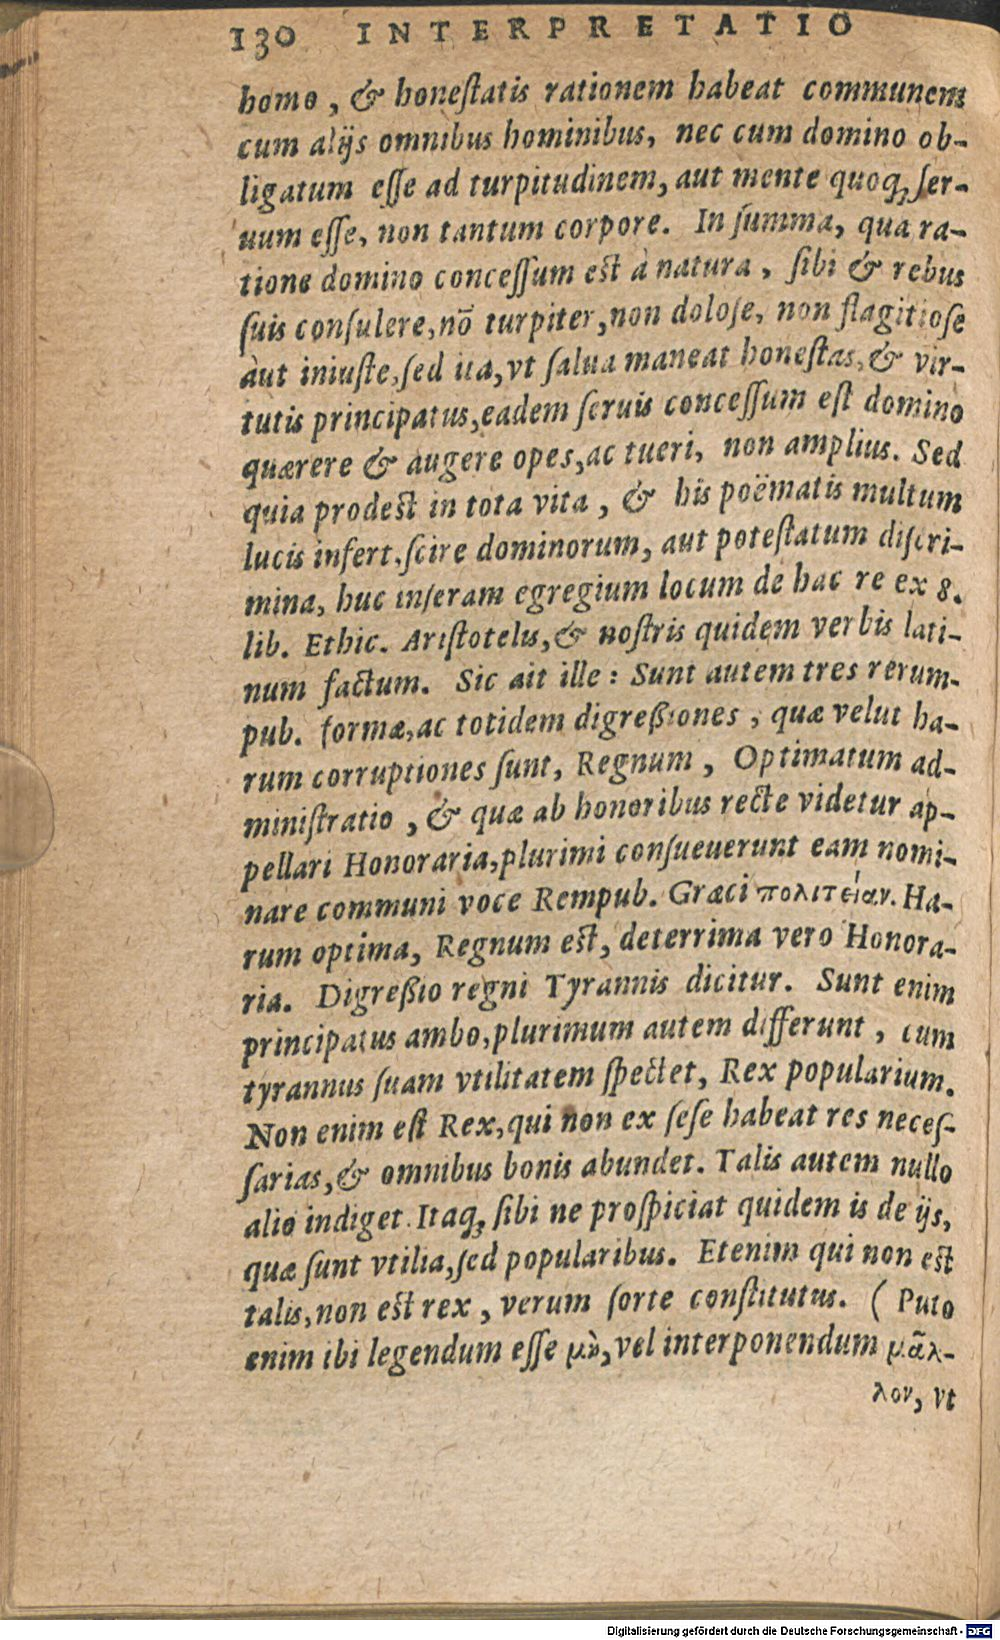 130 INTERPRETATIO
homo, & honeſtatis rationem habeat communem
cum alijs omnibus hominibus, nec cum domino ob-
ligatum eſſe ad turpitudinem, aut mente quoq; ſer-
uum eſſe, non tantum corpore. In ſumma, qua ra-
tione domino conceſſum eſt à natura, ſibi & rebus
ſuis conſulere, nõ turpiter, non doloſe, non flagitioſe
aut iniuſte, ſed ita, vt ſalua maneat honeſtas, & vir-
tutis principatus, eadem ſeruis conceſſum eſt domino
quærere & augere opes, ac tueri, non amplius. Sed
quia prodeſt in tota vita, & his poëmatis multum
lucis infert, ſcire dominorum, aut poteſtatum diſcri-
mina, huc inſeram egregium locum de hac re ex 8.
lib. Ethic. Ariſtotelis, & noſtris quidem verbis lati-
num factum. Sic ait ille: Sunt autem tres rerum-
pub. formæ, ac totidem digreßiones, quæ velut ha-
rum corruptiones ſunt, Regnum, Optimatum ad-
miniſtratio, & quæ ab honoribus recte videtur ap-
pellari Honoraria, plurimi conſueuerunt eam nomi-
nare communi voce Rempub. Græci πολιτείαν. Ha-
rum optima, Regnum eſt, deterrima vero Honora-
ria. Digreßio regni Tyrannis dicitur. Sunt enim
principatus ambo, plurimum autem differunt, cum
tyrannus ſuam vtilitatem ſpectet, Rex popularium.
Non enim eſt Rex, qui non ex ſeſe habeat res neceſ-
ſarias, & omnibus bonis abundet. Talis autem nullo
alio indiget. Itaq; ſibi ne proſpiciat quidem is de ijs,
quæ ſunt vtilia, ſed popularibus. Etenim qui non eſt
talis, non eſt rex, verum ſorte conſtitutus. ( Puto
enim ibi legendum eſſe μὴ, vel interponendum μᾶλ-
λον, vt
Digitalisierung gefördert durch die Deutsche Forschungsgemeinschaft - DFG